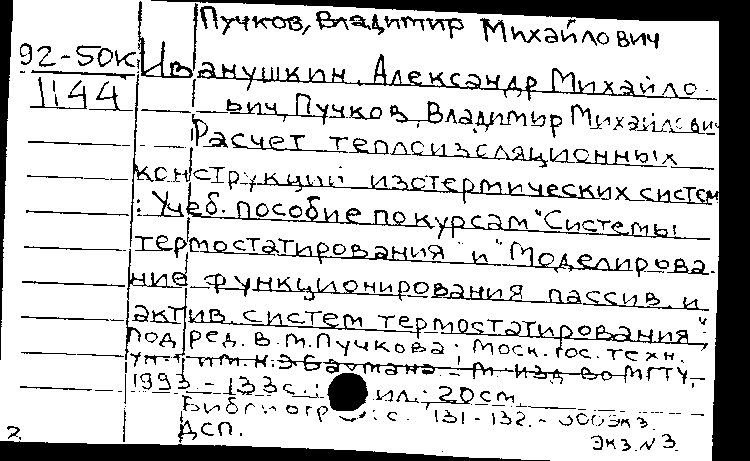 Пучков, Владимир Михайлович
92-50к Иванушкин, Александр Михайло-
1144 вич, Пучков, Владимир Михайлович
Расчет теплоизоляционных
конструкций изотермических систем
: Учеб. пособие по курсам "Системы
термостатирования" и "Моделирова-
ние функционирования пассив. и
актив. систем термостатирования",
под ред. В.М.Пучкова; Моск. гос. техн.
ун-т им. Н.Э.Баумана - М. Изд-во МГТУ,
1993. - 133с.: ил.; 20см.
Библиогр.: с. 131-132. - экз.
ДСП. Экз. N 3.
2